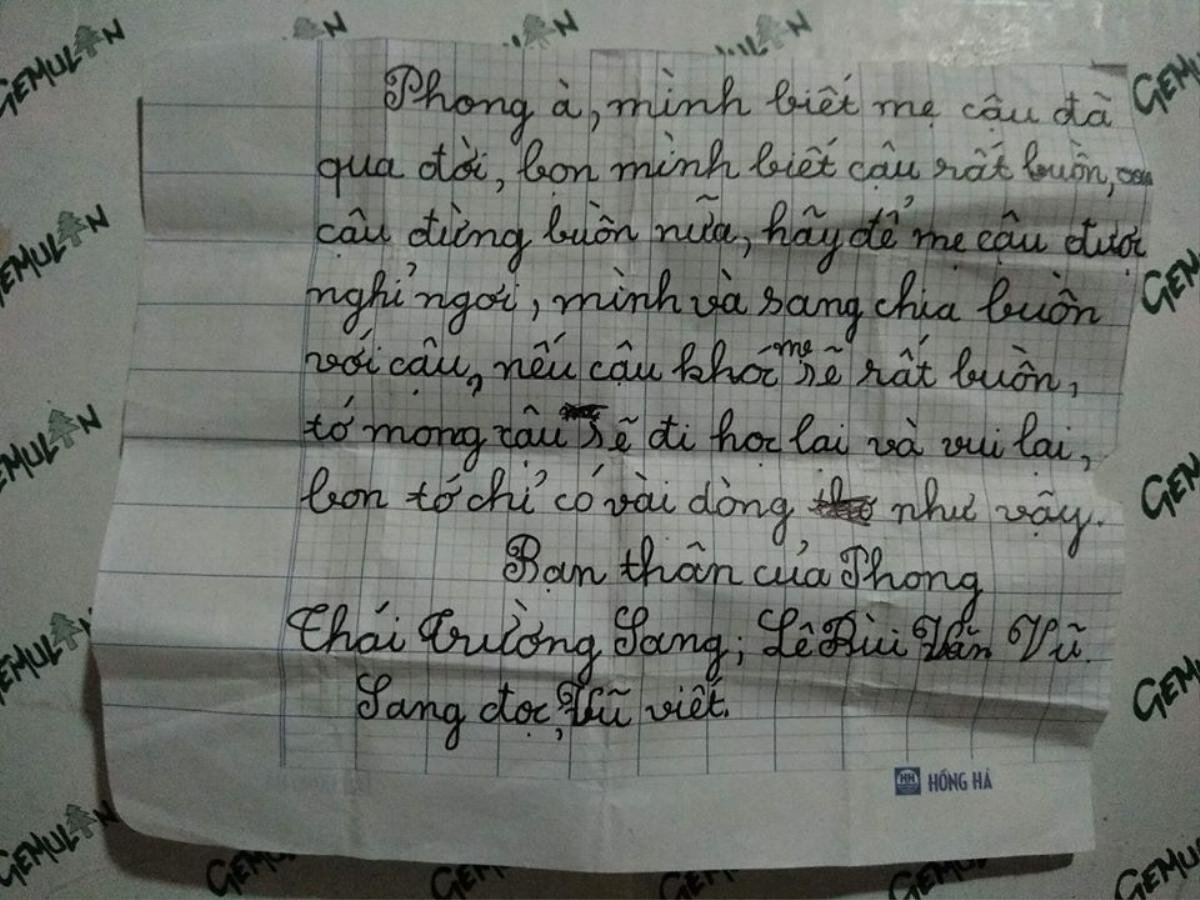 Phong à, mình biết mẹ cậu đã
qua đời, bọn mình biết cậu rất buồn,
cậu đừng buồn nữa, hãy để mẹ cậu được
nghỉ ngơi, mình và sang chia buồn
với cậu, nếu cậu khóc mẹ sẽ rất buồn,
tớ mong cậu sẽ đi học lại và vui lại,
bọn tớ chỉ có vài dòng như vậy.
Bạn thân của Phong
Thái Trường Sang; Lê Bùi Văn Vũ.
Sang đọc, Vũ viết.
HH HỒNG HÀ
GEMULAN
GEMULAN
GEMULAN
GEMULAN
GEMULAN